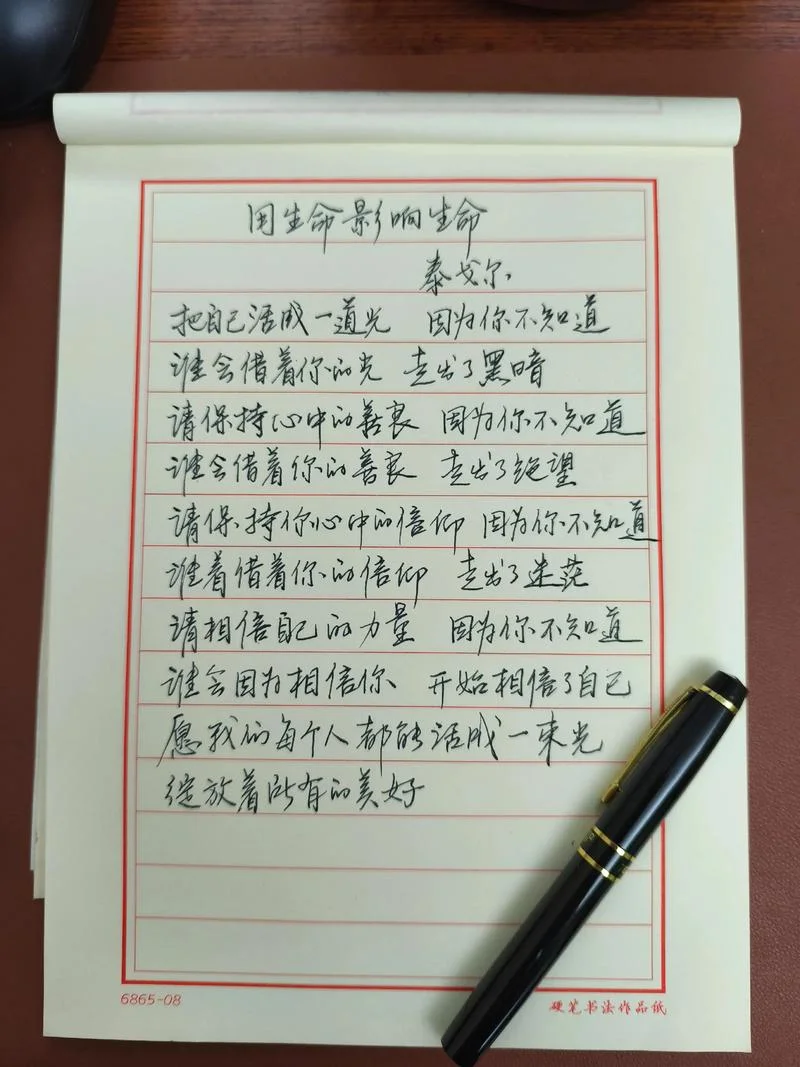 用生命影响生命
泰戈尔
把自己活成一道光 因为你不知道
谁会借着你的光 走出了黑暗
请保持心中的善良 因为你不知道
谁会借着你的善良 走出了绝望
请保持你心中的信仰 因为你不知道
谁着借着你的信仰 走出了迷茫
请相信自己的力量 因为你不知道
谁会因为相信你 开始相信了自己
愿我们每个人都能活成一束光
绽放着所有的美好
6865-08
硬笔书法作品纸